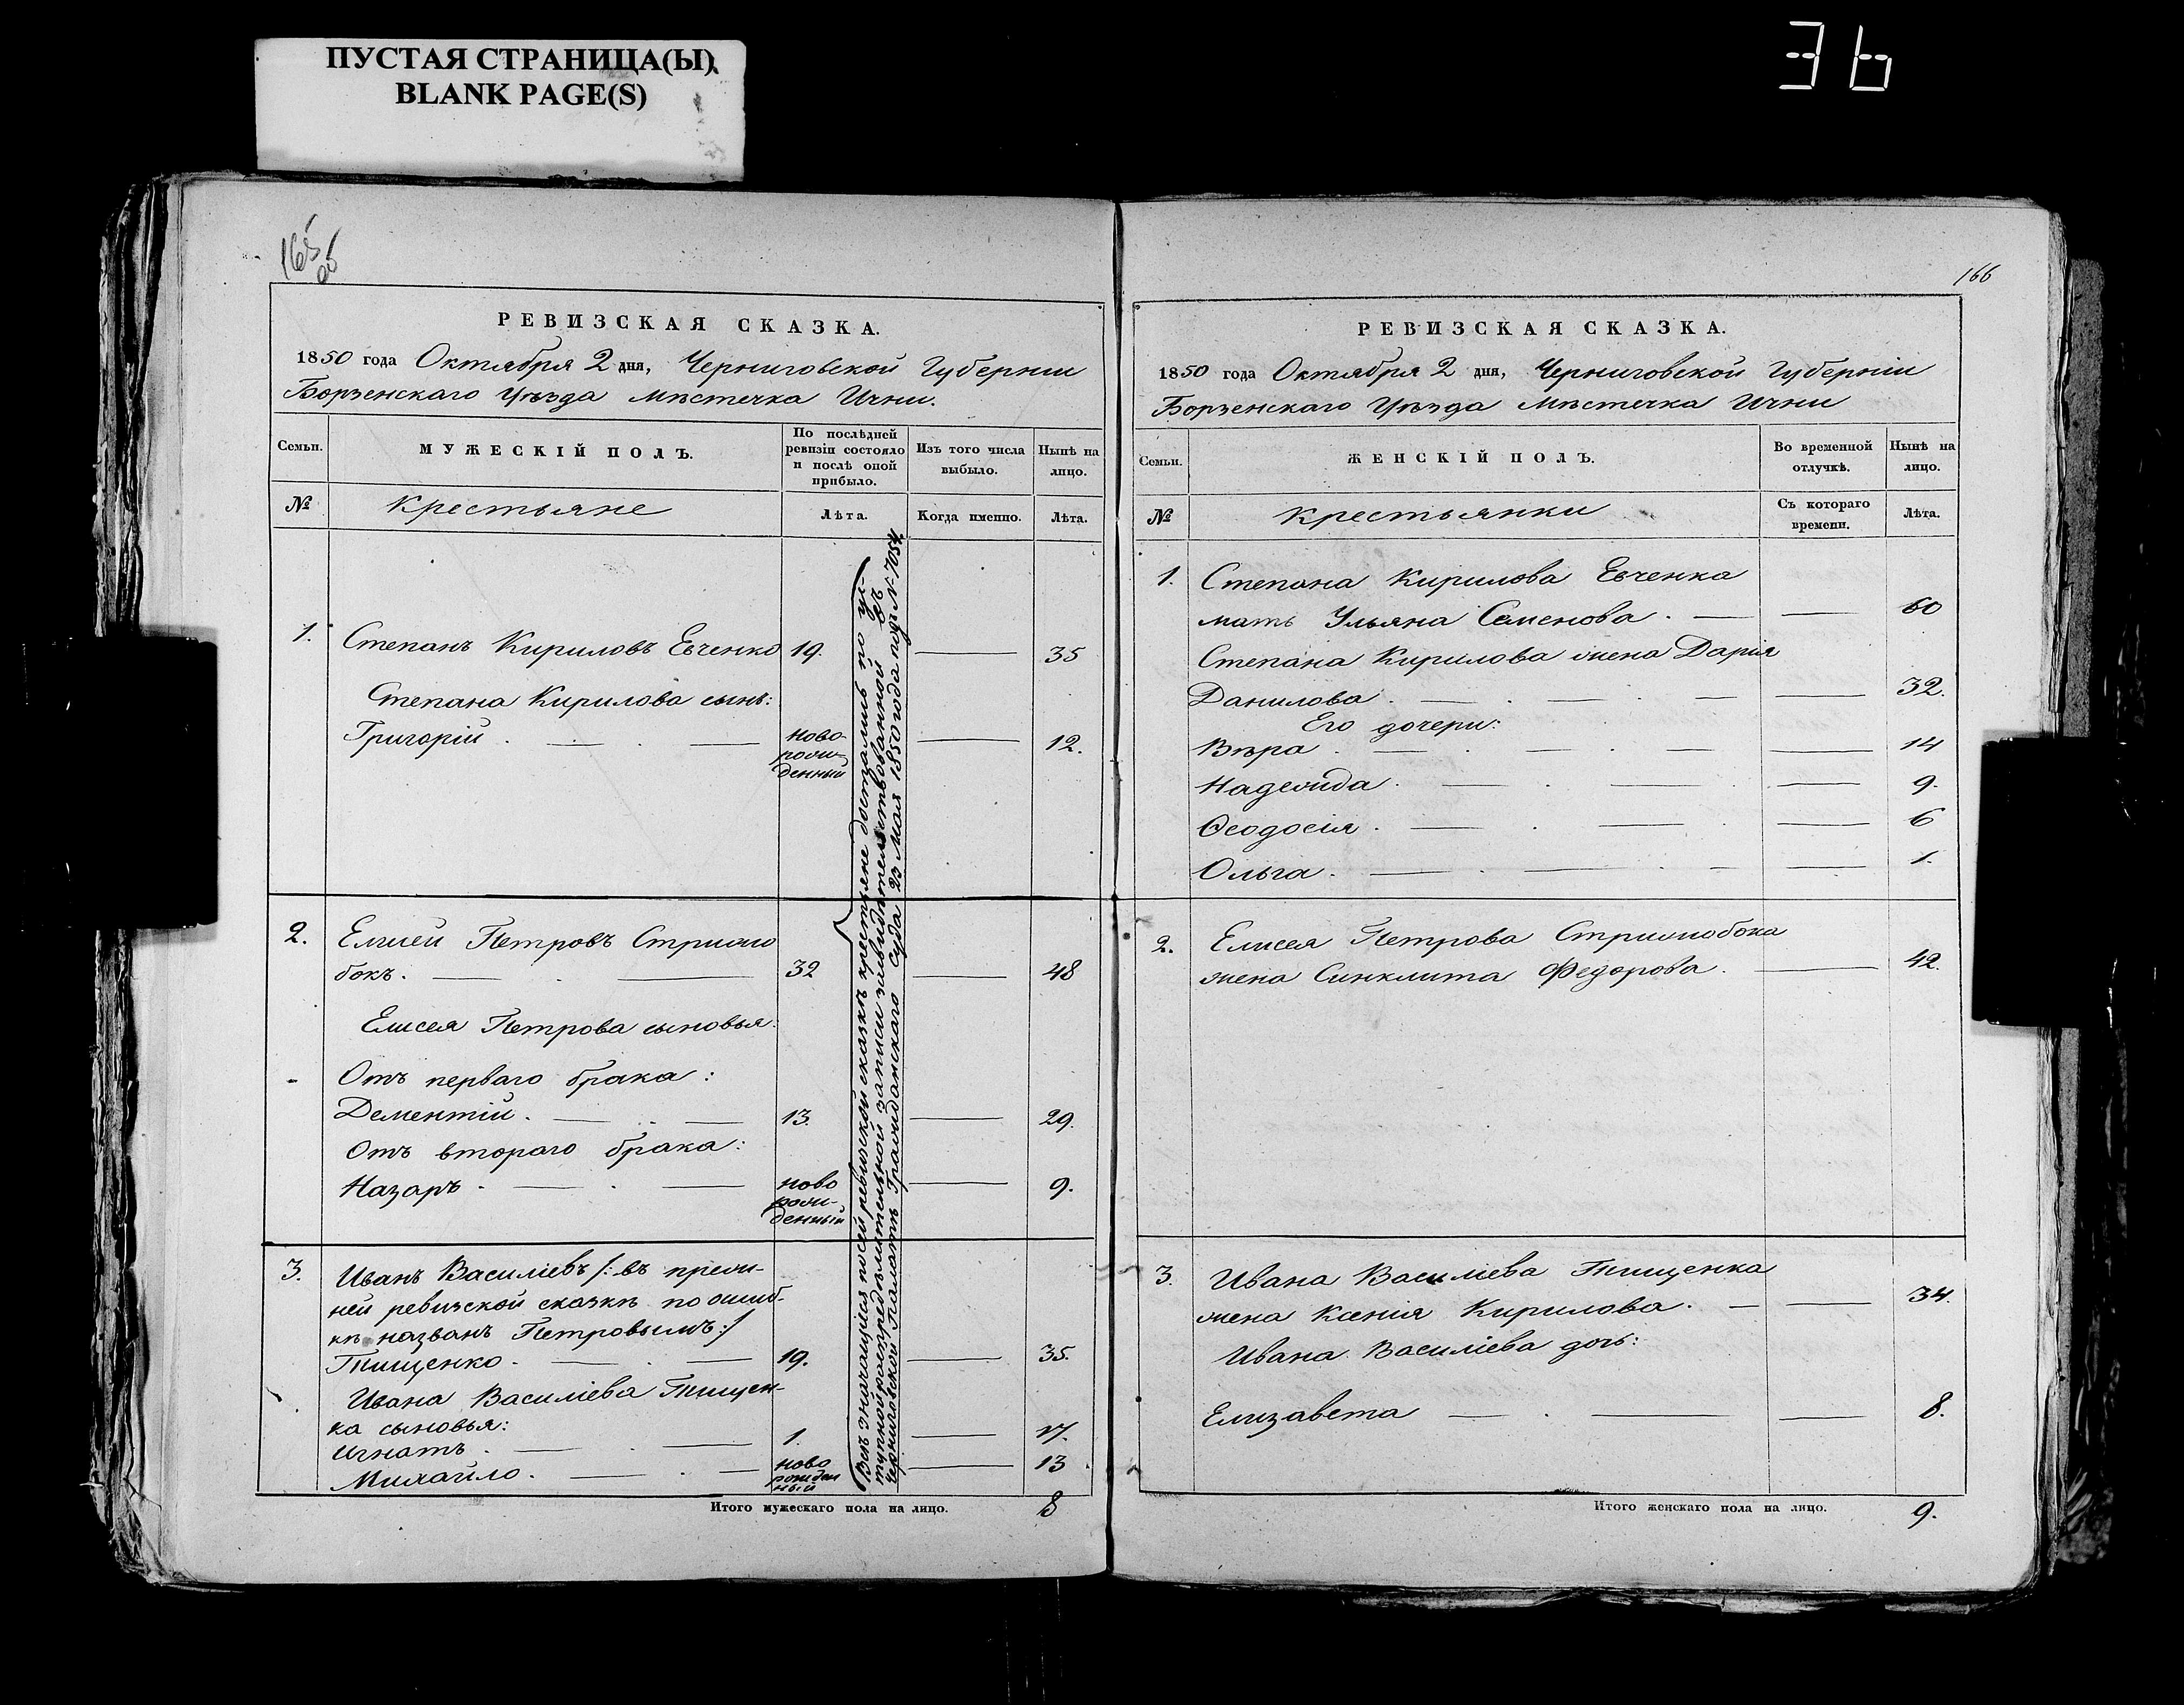 ПУСТАЯ СТРАНИЦА(Ы)
BLANK PAGE(S)
36
165
об
РЕВИЗСКАЯ СКАЗКА.
1850 года Октября 2 дня, Черниговской Губерніи
Борзенскаго Уѣзда Мѣстечка Ични.
Семьи.
МУЖЕСКІЙ ПОЛЪ.
По послѣдней
ревизіи состояло
и послѣ оной
прибыло.
Изъ того числа
выбыло.
Нынѣ на
лицо.
№
Крестьяне
Лѣта.
Когда именно.
Лѣта.
1. Степанъ Кириловъ Евченко 19. — 35
Степана Кирилова сынъ:
Григорій . — . — ново- — 12.
рож-
денный
2. Елисей Петровъ Стрижо
бокъ. — . — 32 — 48
Елисея Петрова сыновья:
Отъ перваго брака:
Дементій. — . — 13. — 29.
Отъ втораго брака:
Назаръ . — . — ново — 9.
рож-
денный
3. Иванъ Василіевъ /: въ преж-
ней ревизской сказкѣ по ошиб-
кѣ названъ Петровымъ :/
Тищенко . — . — 19. — 35.
Ивана Василіева Тищен-
ка сыновья:
Игнатъ . — . — 1. — 17.
Михайло. — . — ново — 13
рожден
ный
Всѣ значащіяся по сей ревизской сказкѣ крестьяне достались по ус-
тупной распредѣлительной записи засвидѣтельствованной въ
Черниговской Палатѣ Гражданскаго Суда 23 Мая 1850 года под № 7054.
Итого мужескаго пола на лицо. 8
166
РЕВИЗСКАЯ СКАЗКА.
1850 года Октября 2 дня, Черниговской Губерніи
Борзенскаго Уѣзда Мѣстечка Ични
Семьи.
ЖЕНСКІЙ ПОЛЪ.
Во временной
отлучкѣ.
Нынѣ на
лицо.
№
Крестьянки
Съ котораго
времени.
Лѣта.
1. Степана Кирилова Евченка
мать Ульяна Семенова . — — 60
Степана Кирилова жена Дарія
Данилова . — . — . — — 32.
Его дочери:
Вѣра . — . — . — — 14
Надежда . — . — . — 9.
Ѳеодосія . — . — . — 6
Ольга . — . — . — — 1.
2. Елисея Петрова Стрижобока
жена Синклита Федорова . — 42.
3. Ивана Василіева Тищенка
жена Ксенія Кирилова . — — 34.
Ивана Василіева дочь:
Елизавета — . — — 8.
Итого женскаго пола на лицо. 9.